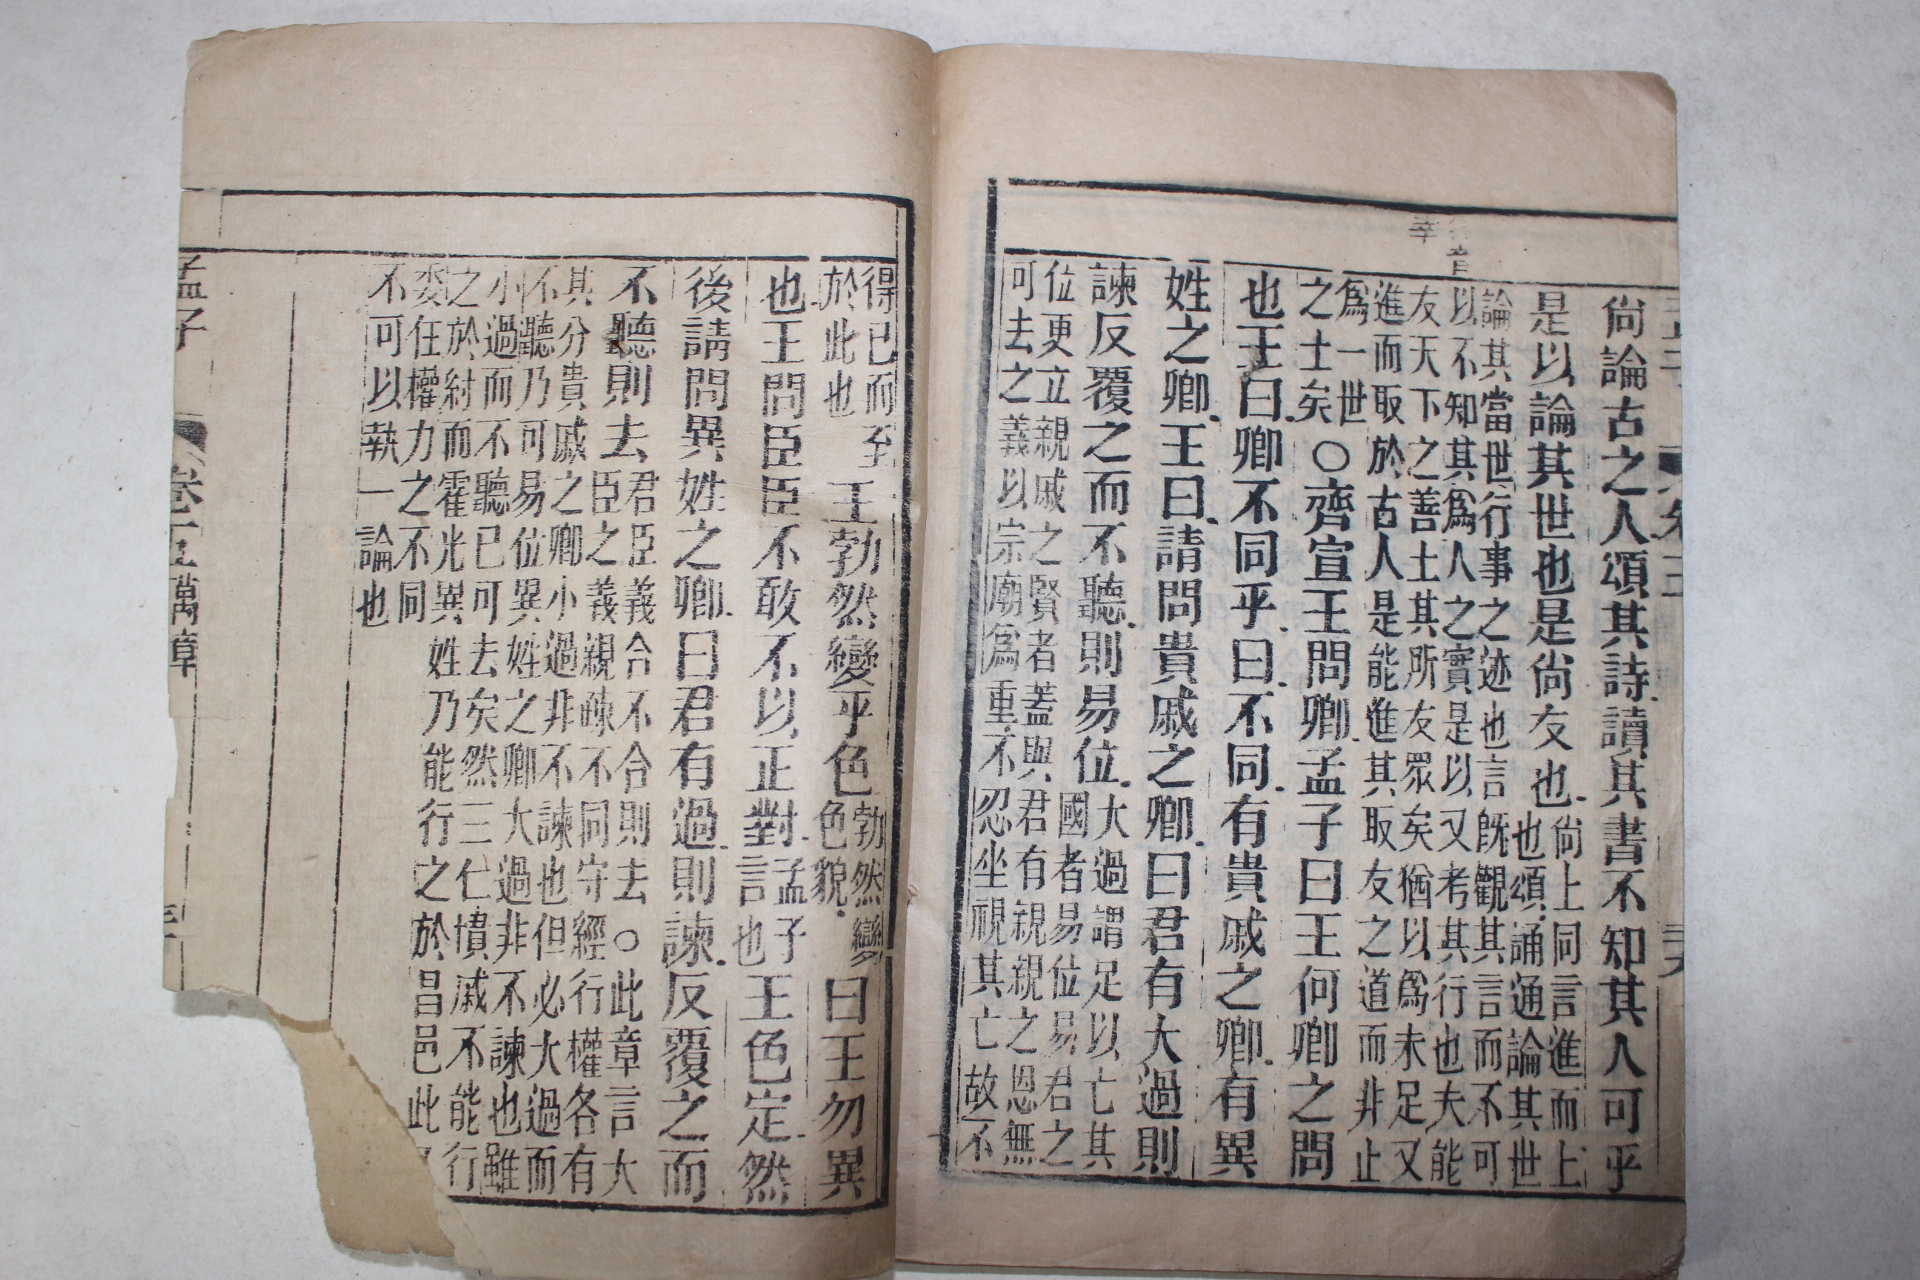 尙論古之人頌其詩讀其書不知其人可乎
是以論其世也是尙友也
尙上同言進而上
也頌誦通論其世
論其當世行事之迹也言旣觀其言而不可
以不知其爲人之實是以又考其行也夫能
友天下之善士其所友眾矣猶以爲未足又
進而取於古人是能進其取友之道而非止
爲一世
之士矣
○齊宣王問卿孟子曰王何卿之問
也王曰卿不同乎曰不同有貴戚之卿有異
姓之卿王曰請問貴戚之卿曰君有大過則
諫反覆之而不聽則易位
大過謂足以亡其
國者易位易君之
位更立親戚之賢者蓋與君有親親之恩無
可去之義以宗廟爲重不忍坐視其亡故不
音
幸
得已而至
於此也
王勃然變乎色
勃然變
色貌
曰王勿異
也王問臣臣不敢不以正對
孟子
言也
王色定然
後請問異姓之卿曰君有過則諫反覆之而
不聽則去
君臣義合不合則去○此章言大
臣之義親疎不同守經行權各有
其分貴戚之卿小過非不諫也但必大過而
不聽乃可易位異姓之卿大過非不諫也雖
小過而不聽已可去矣然三仁貴戚不能行
之於紂而霍光異姓乃能行之於昌邑此
委任權力之不同
不可以執一論也
孟子 卷五萬章